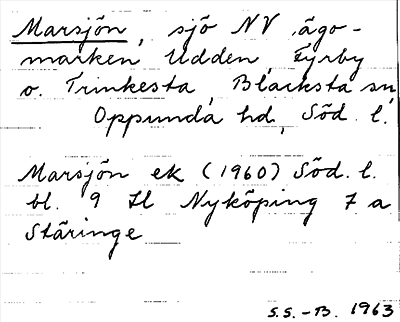 Marsjön, sjö NV ägo-
marken Udden, Fyrby
o. Trinkesta, Blacksta sn,
Oppunda hd, Söd. l.
Marsjön ek (1960) Söd. l.
bl. 9 H Nyköping 7 a
Stäringe
S.S.-B. 1963